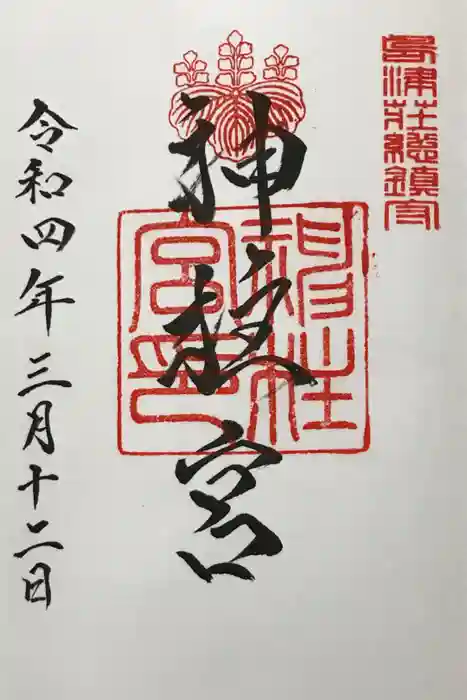 島津荘総鎮守
神柱宮
神柱宮印
令和四年三月十二日